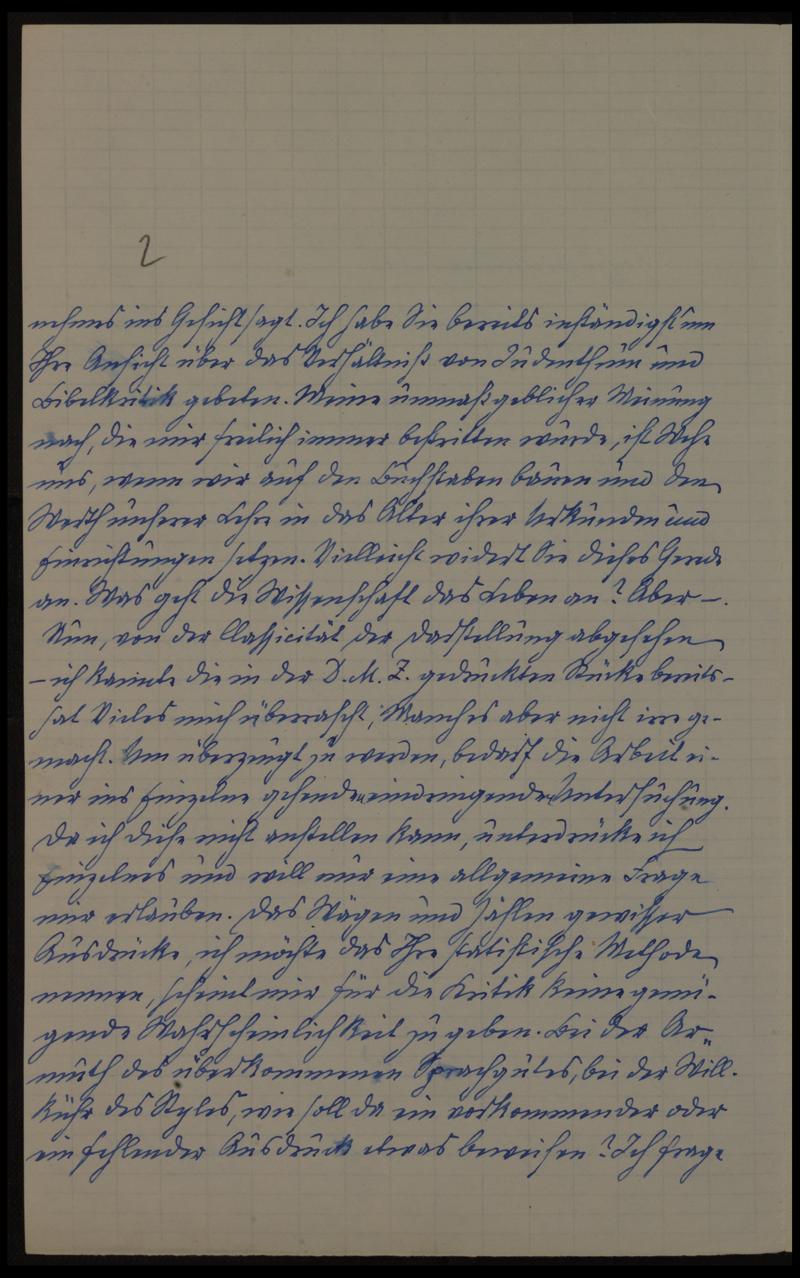 2
nehmes ins Gesicht sagt. Ich habe Sie bereits inständigst um
Ihre Ansicht über das Verhältniß von Judenthum und
Bibelkritik gebeten. Meine unmaßgeblicher Meinung
nach, die mir freilich immer bestritten wurde, ist Wehe
uns, wenn wir auf den Buchstaben bauen und den
Werth unserer Lehre in das Alter ihrer Urkunden und
Einrichtungen setzen. Vielleicht widert Sie dieses Gerede
an. Was geht die Wissenschaft das Leben an? Aber —.
Nun, von der Classicität der Darstellung abgesehen
— ich kannte die in der D. M. Z. gedruckten Stücke bereits —
hat Vieles mich überrascht, Manches aber nicht irre ge-
macht. Um überzeugt zu werden, bedarf die Arbeit ei-
ner ins Einzelne gehenden eindringenden Untersuchung.
Da ich diese nicht anstellen kann, unterdrücke ich
Einzelnes und will nur eine allgemeine Frage
mir erlauben. Das Wägen und Zählen gewisser
Ausdrücke, ich möchte das Ihre statistische Methode
nennen, scheint mir für die Kritik keine genü-
gende Wahrscheinlichkeit zu geben. Bei der Ar-
muth des überkommenen Sprachgutes, bei der Will-
kühr des Styles, wie soll da ein vorkommender oder
ein fehlender Ausdruck etwas beweisen? Ich frage